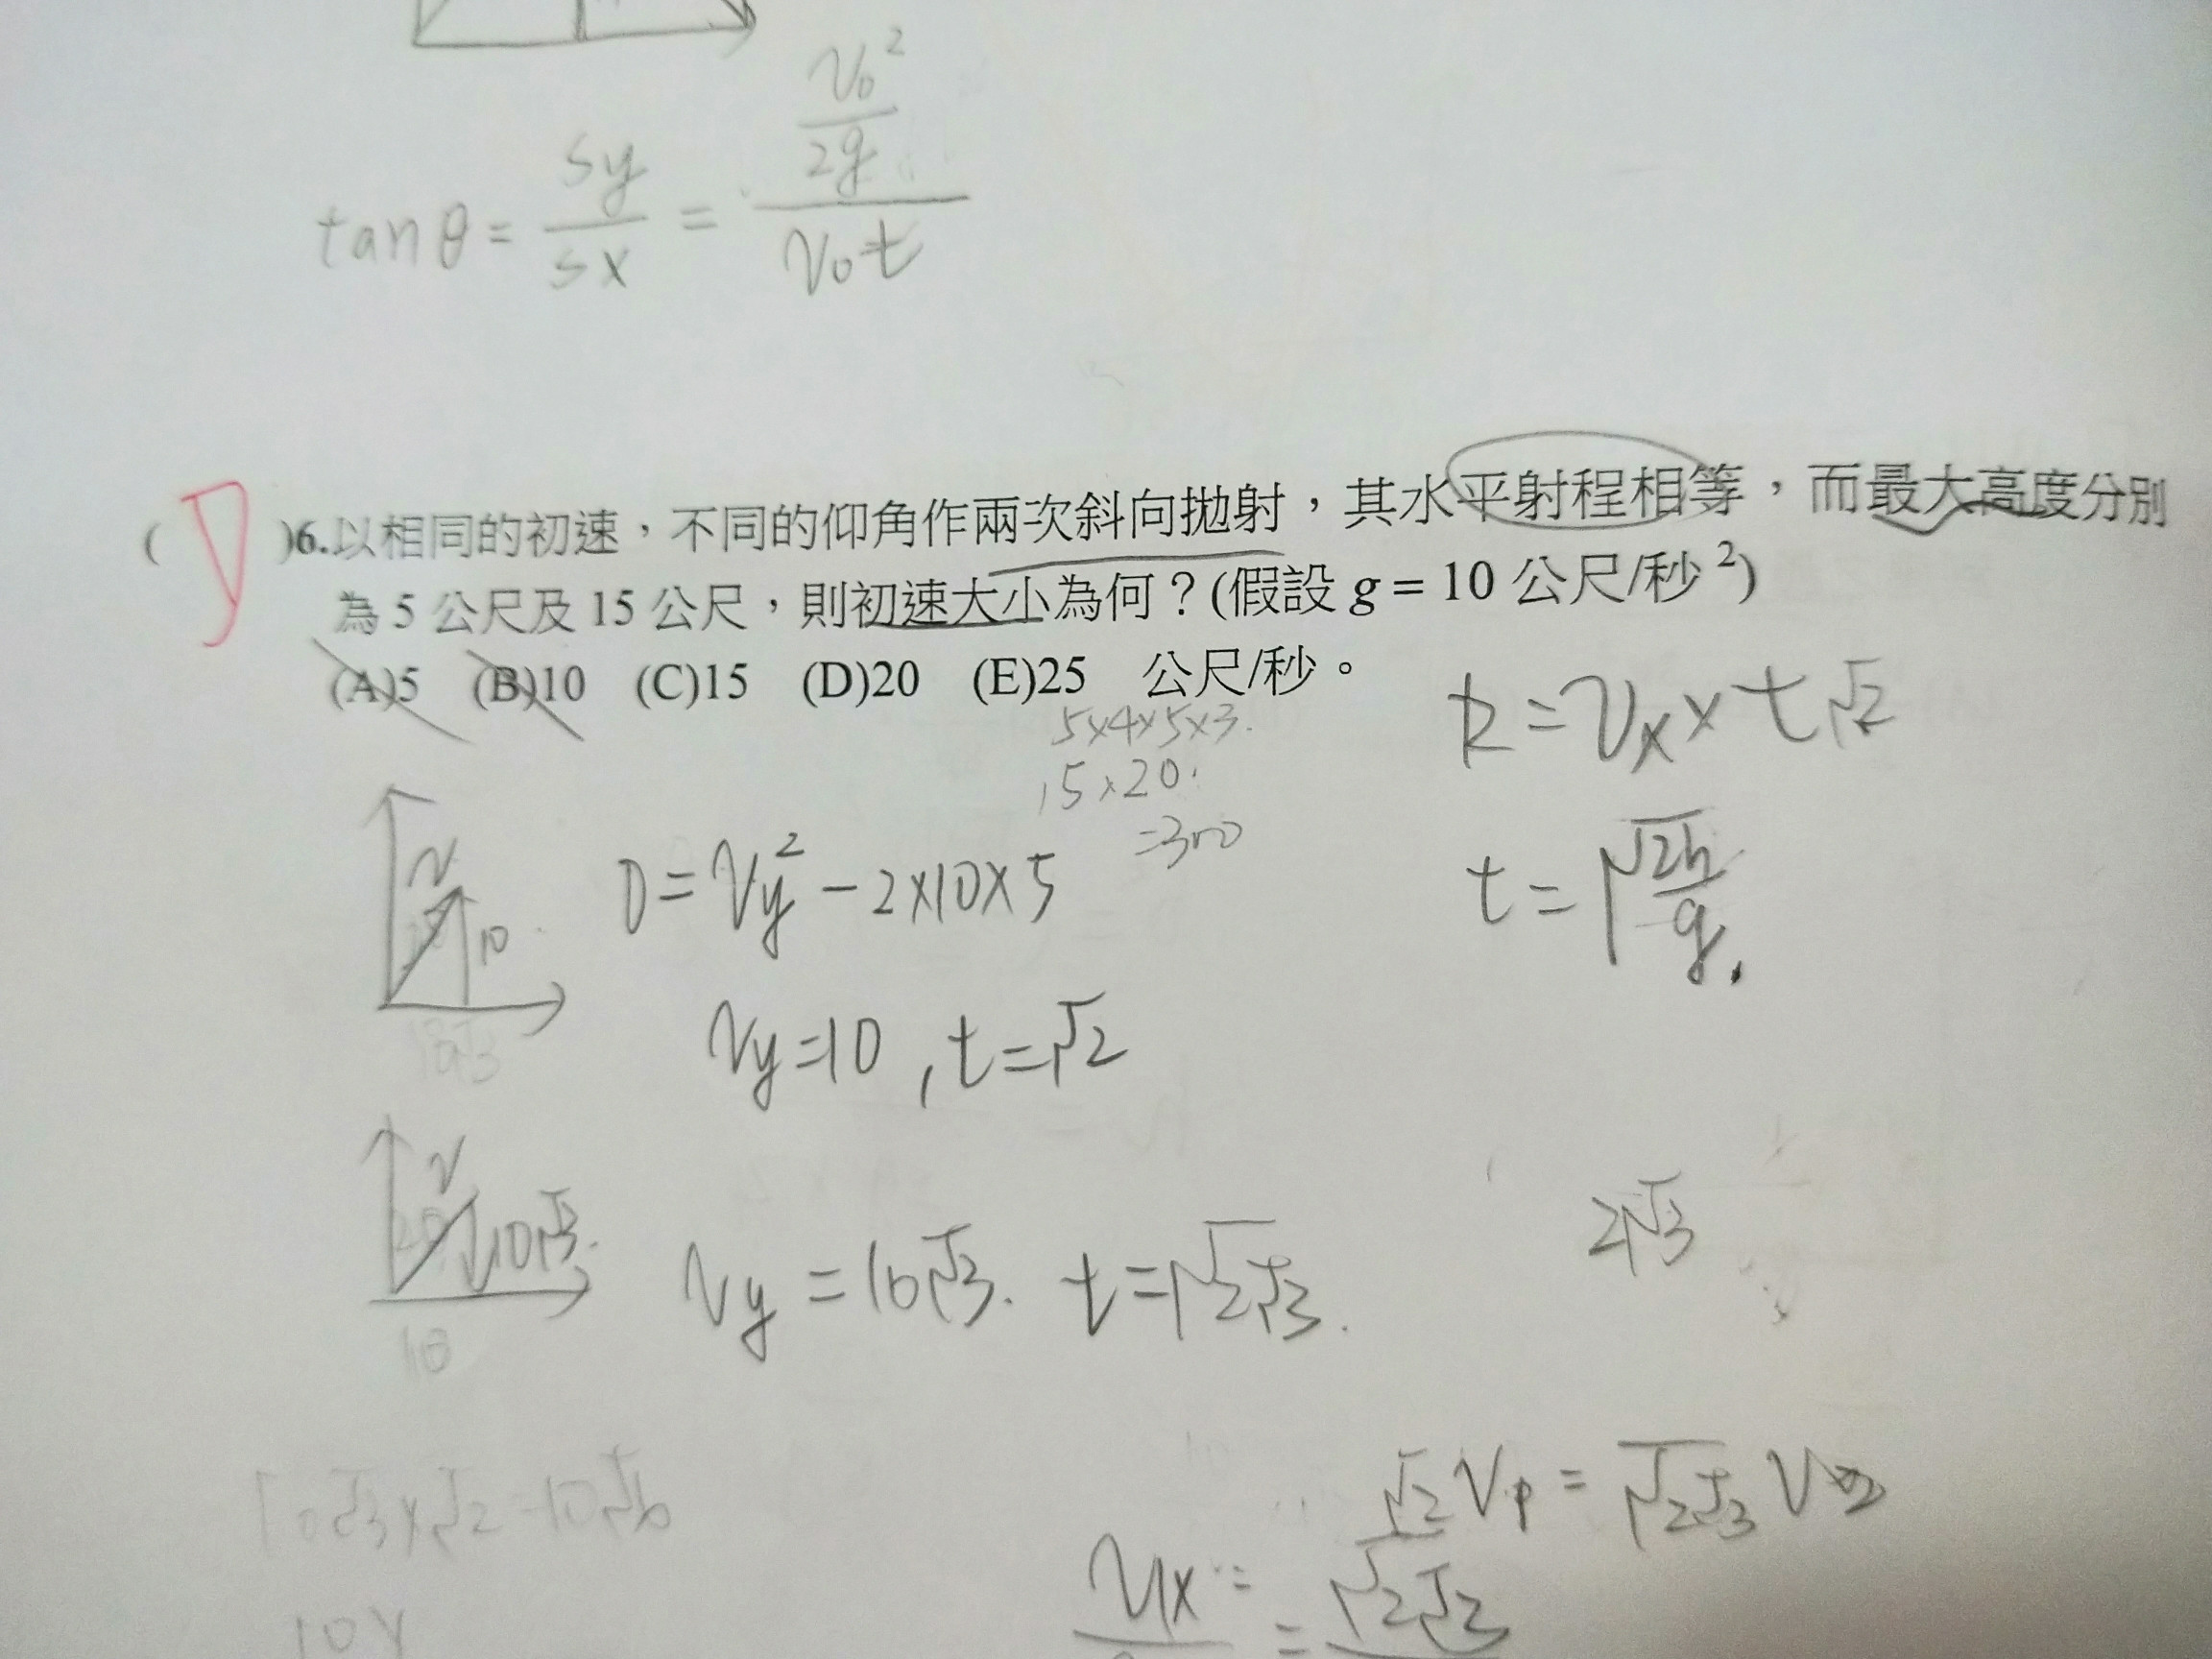 v₀²
2g
tanθ = sy/sx =
v₀t
(D)6.以相同的初速，不同的仰角作兩次斜向拋射，其水平射程相等，而最大高度分別
為 5 公尺及 15 公尺，則初速大小為何？(假設 g = 10 公尺/秒²)
(A)5 (B)10 (C)15 (D)20 (E)25 公尺/秒。
5×4×5×3.
15×20.
=300
R = Vx × t √2
t = √(2h/g).
V
10
0 = Vy² − 2×10×5
Vy=10, t=√2
V
10√3.
Vy = 10√3. t=√(2√3).
2√3
10
10√3×√2=10√6
√2 V₁ = √(2√3) V₂